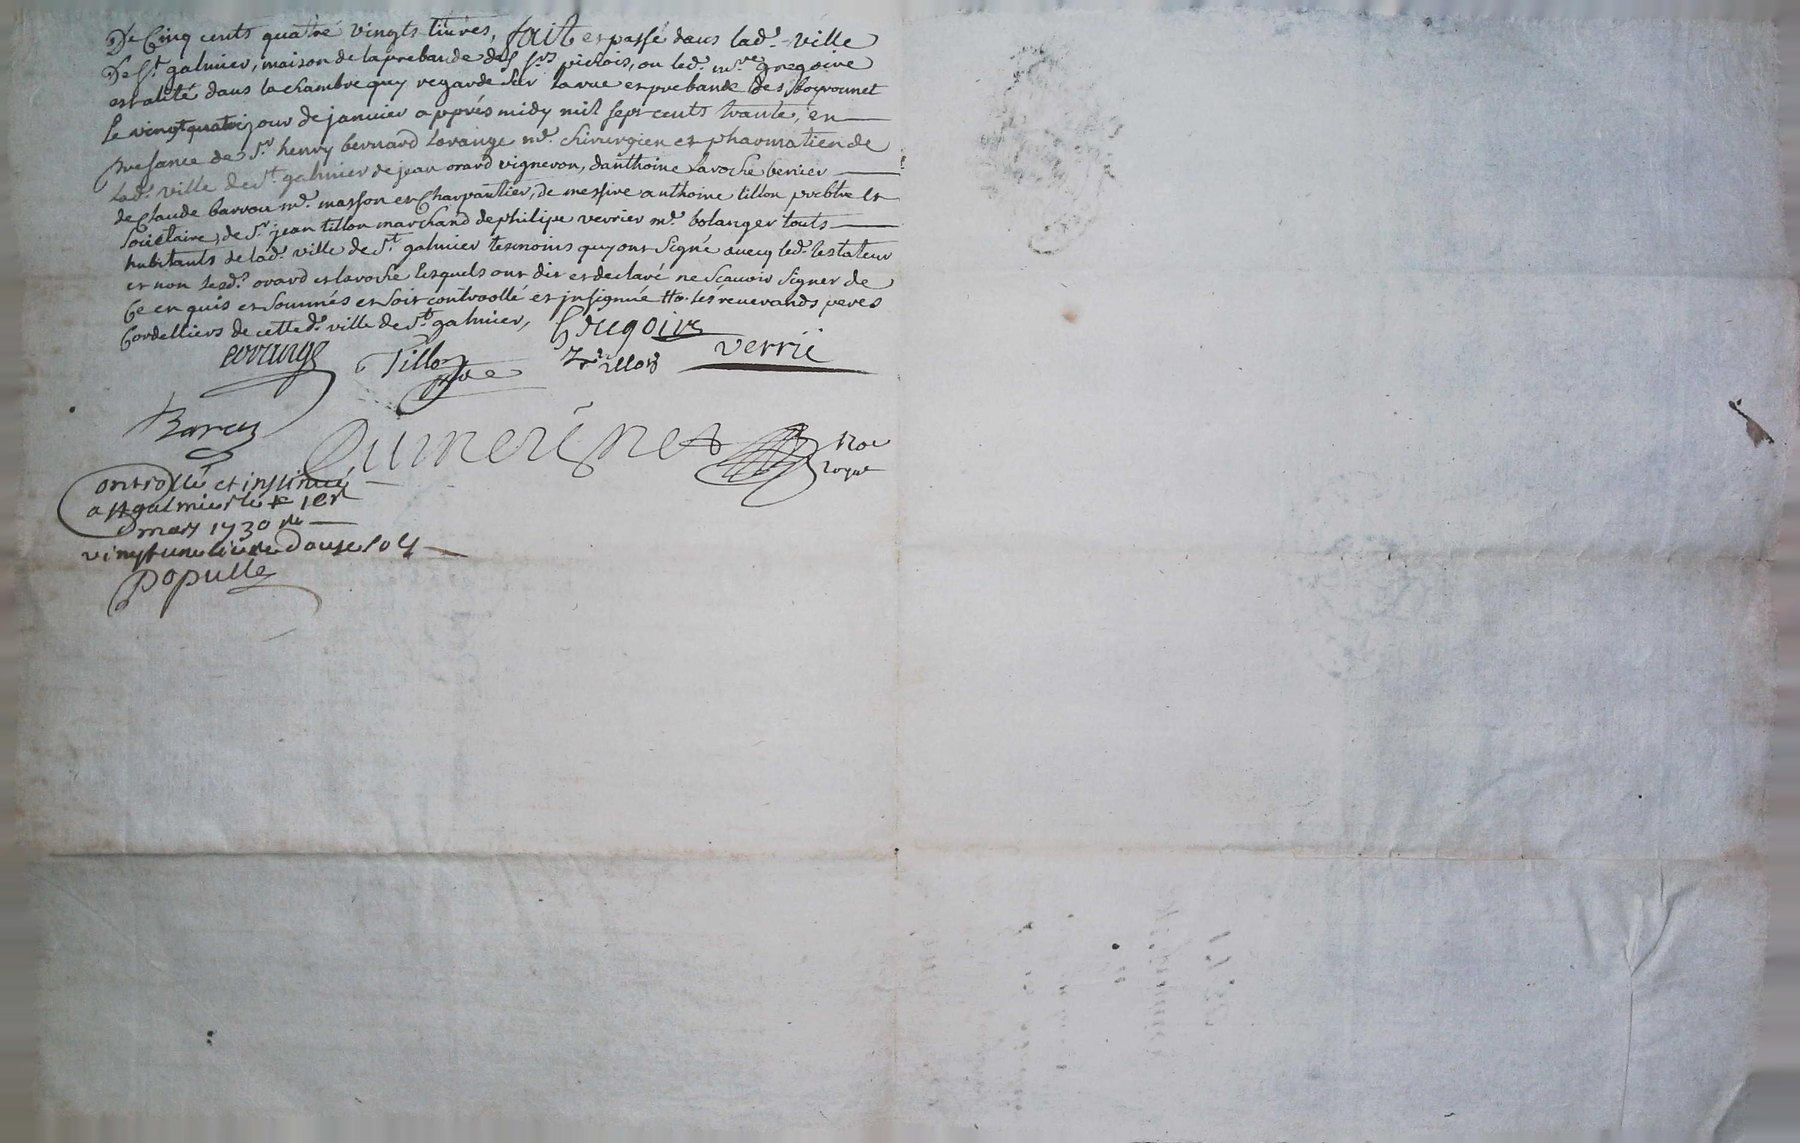 De Cinq cents quatre vingts livres, fait et passé dans lad.e ville
De St galmier, maison de la prebande des srs pichois, ou led. mre gregoire
est alité dans la chambre quy regarde sur la rue et prebande des
le vingt quatre jour de janvier apprés midy mil sept cents trante, en
presance de Sr henry bernard Lorange me. chirurgien et pharmatien de
lad. ville de St galmier de jean orard vigneron, d'anthoine laroche
de Claude barrou me. masson et Charpantier, de messire anthoine tillon prebtre et
Sociétaire, de Sr. jean tillon marchand de philipe verrier me. bolanger touts
habitants de lad. ville de St galmier tesmoins quy ont signé avecq led. testateur
et non lesd.s orard et laroche lesquels ont dit et declaré ne sçavoir signer de
Ce enquis et sommés et soit controollé et insignué les reverands peres
Cordelliers de cette d. ville de St galmier,
Gregoire
Lorange
Tillon pbre
Tillon
verrié
Barou
nore
royal
Controllé et insinué
a St galmier le 1er
mars 1730
vingt une livre douse sols
Populle